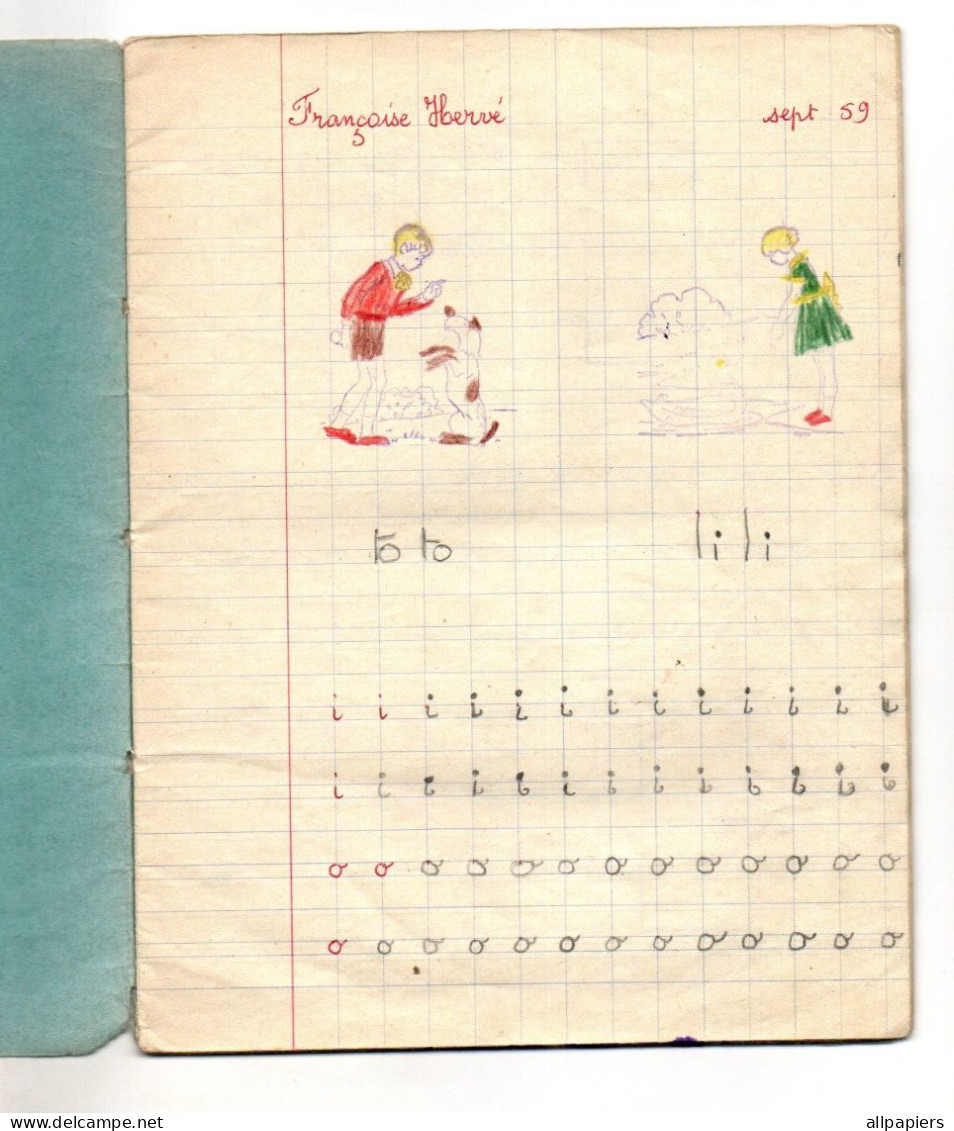 Françoise Hervé sept 59
toto lili
i i i i i i i i i i i i i
i i i i i i i i i i i i i
o o o o o o o o o o o o o
o o o o o o o o o o o o o
allpapiers